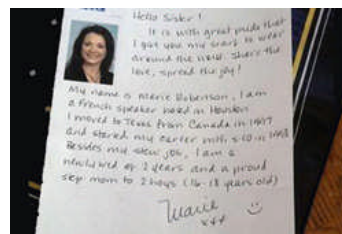 Hello Sister!
It is with great pride that
I got you my scarf to wear
around the world. Share the
love, spread the joy!
My name is Marie Robertson, I am
a French speaker based in Houston
I moved to Texas from Canada in 1997
and started my career with in
Besides my new job, I am a
newlywed of 2 years and a proud
step mom to 2 boys (16-18 years old)
Marie